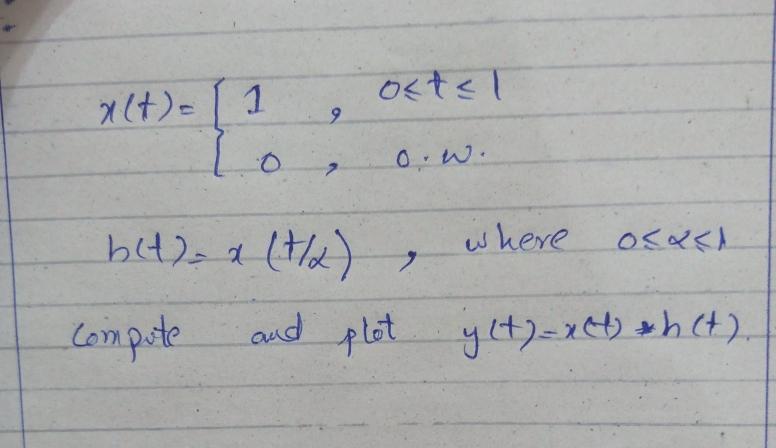 x(t) = { 1 , 0≤t≤1
0 , o.w.
h(t) = x (t/α) , where 0≤α≤1
Compute and plot y(t) = x(t) * h(t).